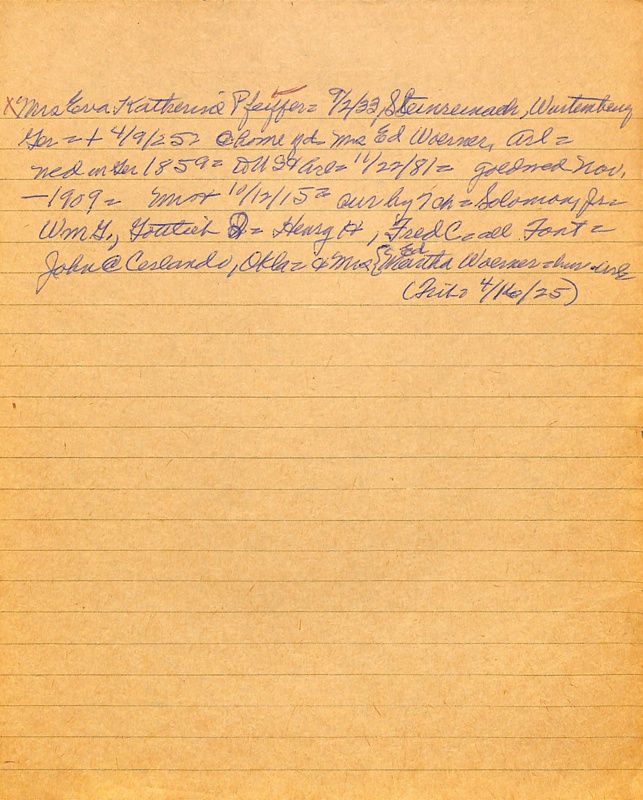 x Mrs Eva Katherine Pfeiffer = 9/2/33, Steinreinach, Wurtemberg
Ger = + 4/9/25 = @ home of d. Mrs Ed Woerner, Arl =
ned in Ger 1859 = to US & Arl = 11/22/81 = goldned Nov.
- 1909 = Mr + 10/12/15 = sur by 7 ch = Solomon, Jr =
Wm G., Gottlieb D = Henry H, Fred C = all Font =
John @ Corlando, Okla = & Mrs { Ed Martha Woerner =
(Trib = 4/16/25)